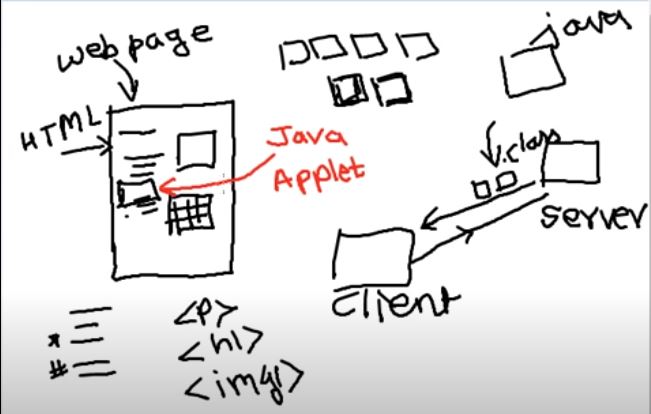 web page
HTML
Java
Applet
java
.class
server
client
*
#
<p>
<h1>
<img>